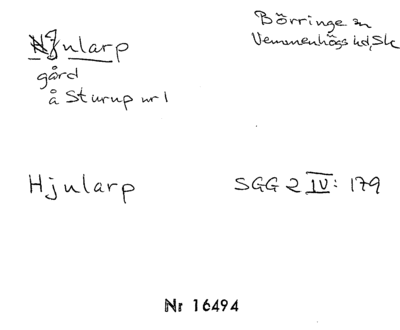 Hjularp
Börringe sn
Vemmenhögs hd, Sk
gård
å Sturup nr 1
Hjularp
SGG 2 IV: 179
Nr 16494